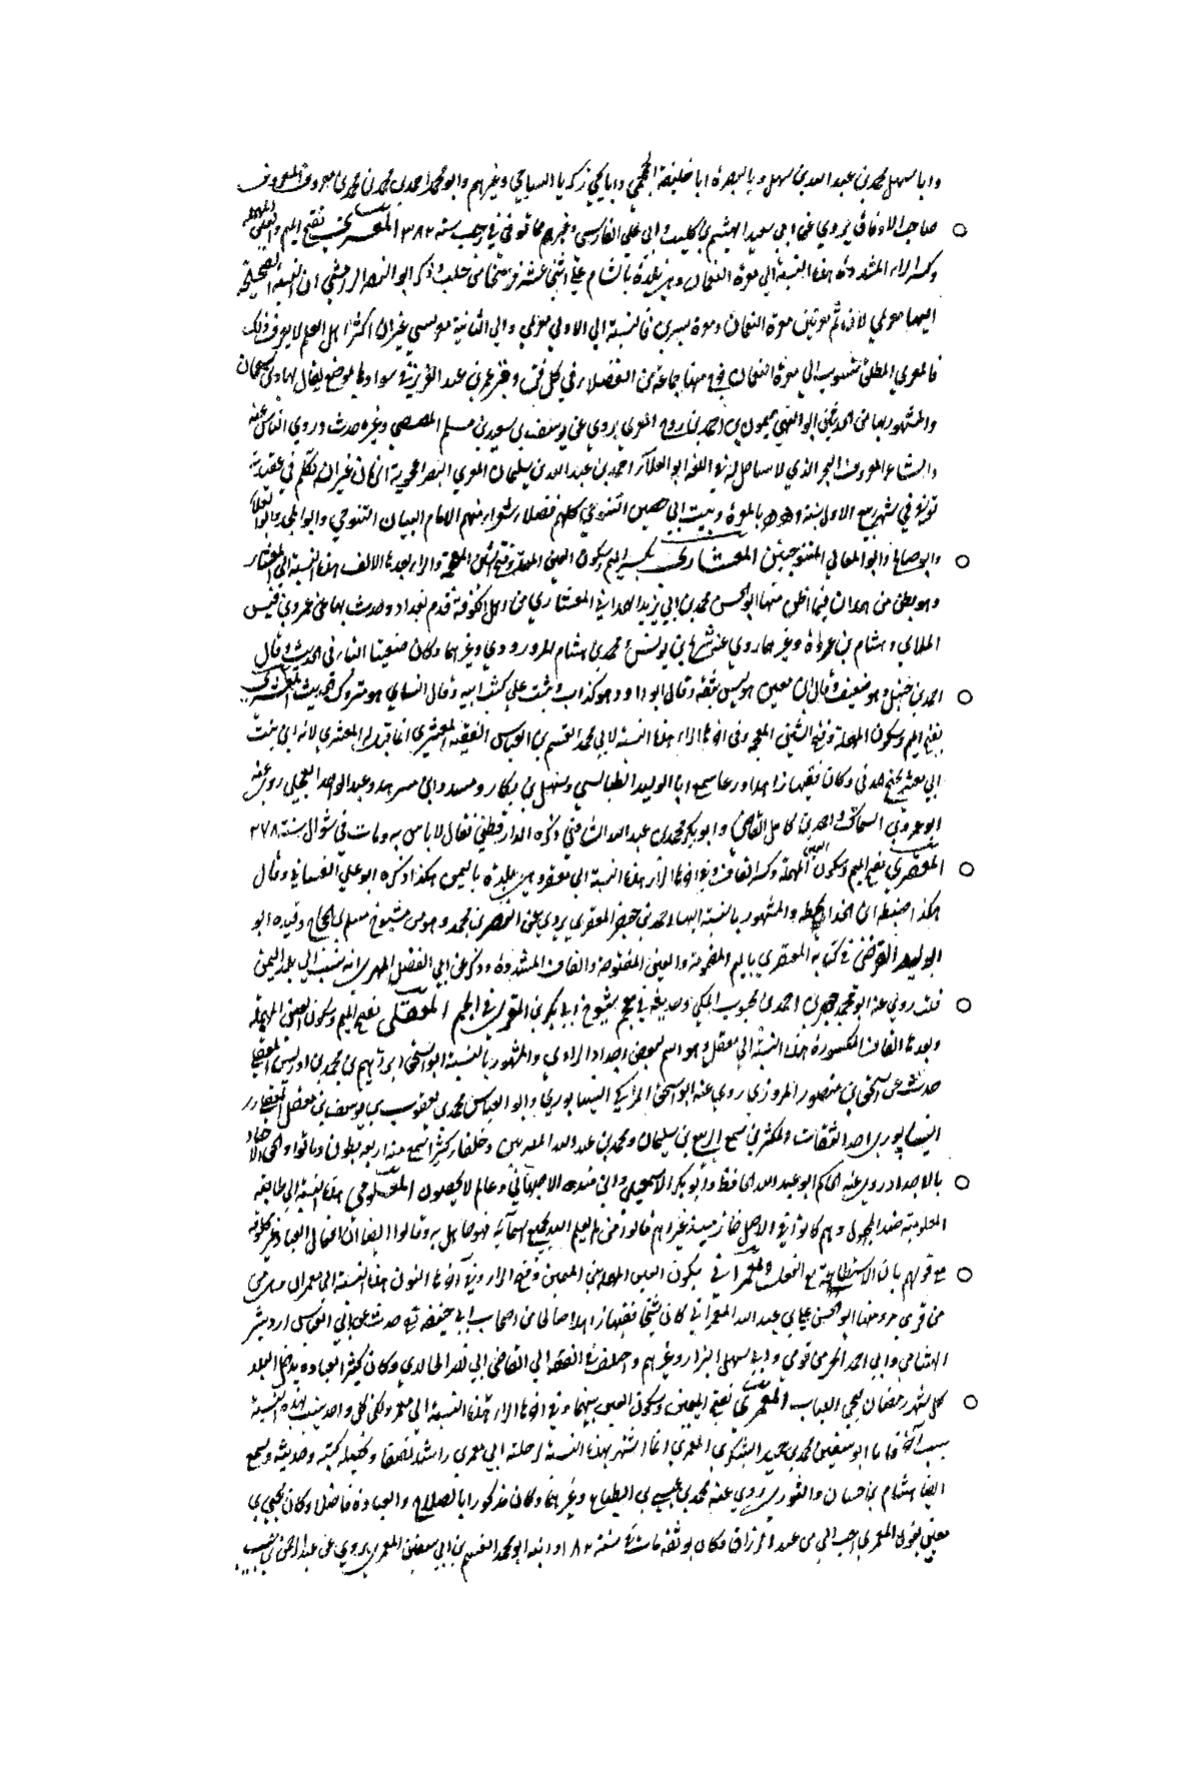 وابا سهل محمد بن عبد الله بن سهل وبالبصرة ابا خليفة الجمحي وابا يحيى زكريا الساجي وغيرهم وابو محمد احمد بن محمد بن محمد بن معروف المعروف
صاحب الاوقاف يروي عن ابي سعيد الهيثم بن كليب وابي علي الفارسي وغيرهما توفي في رجب سنة ٣٨٢ المعري بفتح الميم والعين المهملة
وكسر الراء المشددة هذه النسبة الى معرة النعمان وهي بلدة بالشام على اثني عشر فرسخا من حلب وذكر ابو النصر الرامشي ان النسبة الصحيحة
اليها معرنمي لان ثم معرتين معرة النعمان ومعرة نسرين فالنسبة الى الاولى معرنمي والى الثانية معرنسي غير ان اكثر اهل العلم لا يعرف ذلك
فالمعري المطلق منسوب الى معرة النعمان خرج منها جماعة من الفضلاء في كل فن وقبر عمر بن عبد العزيز في سوادها بموضع يقال لها دير سمعان
والمشهور بها من المحدثين ابو النهي ميمون بن احمد بن روح المعري يروي عن يوسف بن سعيد بن مسلم المصيصي وغيره حدث وروى الناس عنه
والشاعر المعروف البحر الذي لا ساحل له في اللغة ابو العلاء احمد بن عبد الله بن سليمان المعري البصر اعجوبة الزمان غير ان تكلم في عقيدته
توفي في شهر ربيع الاول سنة بالمعرة وبيت ابي حصين التنوخي كلهم فضلاء شعراء منهم الامام البيان التنوخي وابو يعلى وابو العلاء
وابو صالح وابو المعالي التنوخيين المعشاري بكسر الميم وسكون العين المهملة وفتح الشين المعجمة والراء بعدها الالف هذه النسبة الى المعشار
وهو بطن من همدان فيما اظن منها ابو الحسن محمد بن ابي يزيد الهمداني المعشاري من اهل الكوفة قدم بغداد وحدث بها عن عمرو بن قيس
الملائي وهشام بن عروة وغيرهما روى عنه شريح بن يونس محمد بن هشام المروروذي وغيرهما وكان ضعيفا الناس في الحديث وقال
احمد بن حنبل هو ضعيف وقال ابن معين هو ليس بثقة وقال ابو داود هو كذاب وثبت على كتب ابيه وقال النسائي هو متروك الحديث المعشري
بفتح الميم وسكون المهملة وفتح الشين المعجمة وفي اخرها الراء هذه النسبة لابي محمد القسم بن العباس الفقيه المعشري انما قيل له المعشري لانه ابن بنت
ابي معشر نجيح المدني وكان فقيها زاهدا ورعا سمع ابا الوليد الطيالسي وسهل بن بكار ومسدد بن مسرهد وعبد الواحد البجلي روى عنه
ابو عمرو بن السماك واحمد بن كامل القاضي وابو بكر محمد بن عبد الله الشافعي وذكره الدارقطني فقال لا باس به ومات في شوال سنة ٢٧٨
المعقري بفتح الميم وسكون العين المهملة وكسر القاف وفي اخرها الراء هذه النسبة الى معقر وهي بلدة باليمن هكذا ذكره ابو علي الغساني وقال
هكذا ضبطه ابن الحذا بخطه والمشهور بالنسبة اليها احمد بن جعفر المعقري يروي عن النضر بن محمد وهو من مشيوخ مسلم بن الحجاج وقيده ابو
الوليد الفرضي في كتابه المعقري بالميم المضمومة والعين المفتوحة والقاف المشددة وذكر عن ابي الفضل الهروي انه نسب الى بلد اليمن
قلت روى عنه ابو محمد بن احمد بن محبوب المكي وحديثه في معجم شيوخ ابي بكر بن المقري في الجيم المعقلي بفتح الميم وسكون العين المهملة
وبعدها القاف المكسورة هذه النسبة الى معقل وهو اسم لبعض اجداد الراوي والمشهور بالنسبة ابو اسحق ابرهيم بن محمد بن ادريس المعقلي
حدث عن اسحق بن منصور المروزي روى عنه ابو اسحق المزكي النيسابوري وابو العباس محمد بن يعقوب بن يوسف بن معقل
النيسابوري احد الثقات والمكثرين سمع الربيع بن سليمان ومحمد بن عبد الله المصريين وخلقا كثيرا سمع منه اربع بطون وماتوا والحق الاحفاد
بالاجداد روى عنه الحاكم ابو عبد الله الحافظ وابو بكر الاسمعيلي وابن مندة الاصبهاني وعالم لا يحصون المعلومي هذه النسبة الى طايفة
المعلومية ضد المجهول وهم كانوا في الاصل خازمية غير انهم قالوا من لم يعلم الله بجميع اسمائه فهو جاهل به وقالوا ايضا ان افعال العباد غير مخلوقة
مع قولهم بان الاستطاعة مع الفعل المعمراني بسكون العين المهملة بين الميمين وفتح الراء وفي اخرها النون هذه النسبة الى معمران وهي
من قرى مرو منها ابو الحسن علي بن عبد الله المعمراني كان شيخا فقيها زاهدا صالحا من اصحاب ابي حنيفة حدث عن ابي العباس اردشير
الهشامي وابي احمد ... وابي سهل البزار وغيرهم واختلف في الفقه الى القاضي ابي نصر الخالدي وكان كثير العبادة يدخل البلد
كل شهر رمضان يحيى العباب المعمري بفتح الميمين وسكون العين بينهما وفي اخرها الراء هذه النسبة الى معمر ولكن كل واحد ينسب بهذه النسبة
بسبب آخر فاما ابو سفين محمد بن حميد اليشكري المعمري انما اشتهر بهذه النسبة لرحلته الى معمر بن راشد بصنعا وكتبه كتبه وحديثه وسمع
ايضا هشام بن حسان والثوري روى عنه محمد بن عيسى بن الطباع وغيرهما وكان مذكورا بالصلاح والعبادة فاضلا وكان يحيى بن
معين يقول المعمري احب الي من عبد الرزاق وكان هو ثقة مات سنة ١٨٢ وابنه ابو محمد القسم بن ابي سفين المعمري يروي عن عبد الرحمن بن حبيب